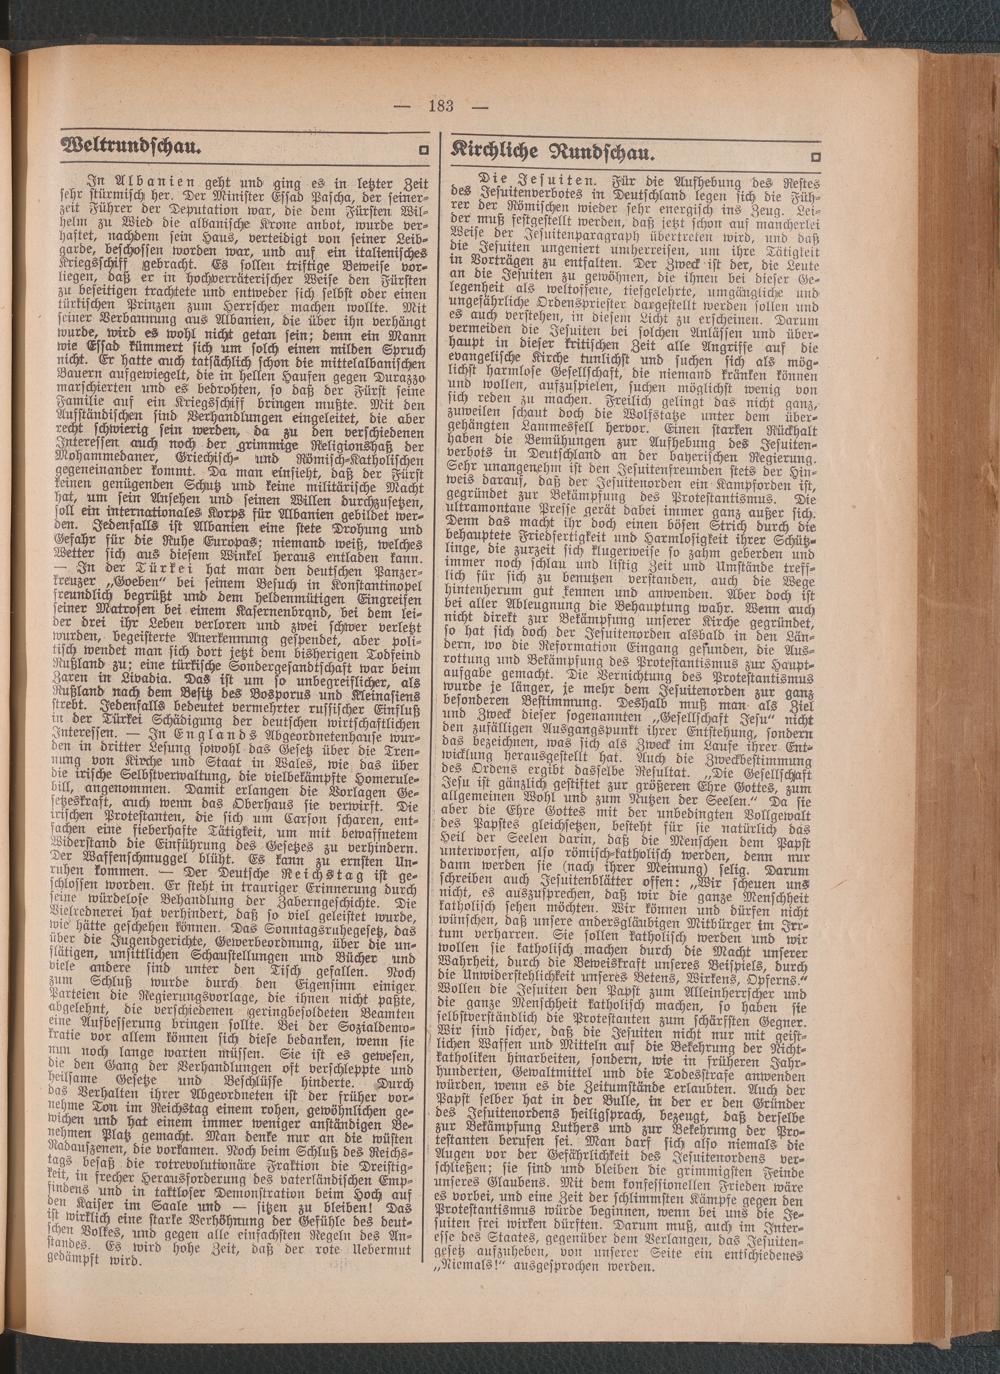 — 183 —
Weltrundschau.
In Albanien geht und ging es in letzter Zeit
sehr stürmisch her. Der Minister Essad Pascha, der seiner-
zeit Führer der Deputation war, die dem Fürsten Wil-
helm zu Wied die albanische Krone anbot, wurde ver-
haftet, nachdem sein Haus, verteidigt von seiner Leib-
garde, beschossen worden war, und auf ein italienisches
Kriegsschiff gebracht. Es sollen triftige Beweise vor-
liegen, daß er in hochverräterischer Weise den Fürsten
zu beseitigen trachtete und entweder sich selbst oder einen
türkischen Prinzen zum Herrscher machen wollte. Mit
seiner Verbannung aus Albanien, die über ihn verhängt
wurde, wird es wohl nicht getan sein; denn ein Mann
wie Essad kümmert sich um solch einen milden Spruch
nicht. Er hatte auch tatsächlich schon die mittelalbanischen
Bauern aufgewiegelt, die in hellen Haufen gegen Durazzo
marschierten und es bedrohten, so daß der Fürst seine
Familie auf ein Kriegsschiff bringen mußte. Mit den
Aufständischen sind Verhandlungen eingeleitet, die aber
recht schwierig sein werden, da zu den verschiedenen
Interessen auch noch der grimmige Religionshaß der
Mohammedaner, Griechisch- und Römisch-Katholischen
gegeneinander kommt. Da man einsieht, daß der Fürst
keinen genügenden Schutz und keine militärische Macht
hat, um sein Ansehen und seinen Willen durchzusetzen,
soll ein internationales Korps für Albanien gebildet wer-
den. Jedenfalls ist Albanien eine stete Drohung und
Gefahr für die Ruhe Europas; niemand weiß, welches
Wetter sich aus diesem Winkel heraus entladen kann.
— In der Türkei hat man den deutschen Panzer-
kreuzer „Goeben“ bei seinem Besuch in Konstantinopel
freundlich begrüßt und dem heldenmütigen Eingreifen
seiner Matrosen bei einem Kasernenbrand, bei dem lei-
der drei ihr Leben verloren und zwei schwer verletzt
wurden, begeisterte Anerkennung gespendet, aber poli-
tisch wendet man sich dort jetzt dem bisherigen Todfeind
Rußland zu; eine türkische Sondergesandtschaft war beim
Zaren in Livadia. Das ist um so unbegreiflicher, als
Rußland nach dem Besitz des Bosporus und Kleinasiens
strebt. Jedenfalls bedeutet vermehrter russischer Einfluß
in der Türkei Schädigung der deutschen wirtschaftlichen
Interessen. — In Englands Abgeordnetenhause wur-
den in dritter Lesung sowohl das Gesetz über die Tren-
nung von Kirche und Staat in Wales, wie das über
die irische Selbstverwaltung, die vielbekämpfte Homerule-
bill, angenommen. Damit erlangen die Vorlagen Ge-
setzeskraft, auch wenn das Oberhaus sie verwirft. Die
irischen Protestanten, die sich um Carson scharen, ent-
fachen eine fieberhafte Tätigkeit, um mit bewaffnetem
Widerstand die Einführung des Gesetzes zu verhindern.
Der Waffenschmuggel blüht. Es kann zu ernsten Un-
ruhen kommen. — Der Deutsche Reichstag ist ge-
schlossen worden. Er steht in trauriger Erinnerung durch
seine würdelose Behandlung der Zaberngeschichte. Die
Vielrednerei hat verhindert, daß so viel geleistet wurde,
wie hätte geschehen können. Das Sonntagsruhegesetz, das
über die Jugendgerichte, Gewerbeordnung, über die un-
flätigen, unsittlichen Schaustellungen und Bücher und
viele andere sind unter den Tisch gefallen. Noch
zum Schluß wurde durch den Eigensinn einiger
Parteien die Regierungsvorlage, die ihnen nicht paßte,
abgelehnt, die verschiedenen geringbesoldeten Beamten
eine Aufbesserung bringen sollte. Bei der Sozialdemo-
kratie vor allem können sich diese bedanken, wenn sie
nun noch lange warten müssen. Sie ist es gewesen,
die den Gang der Verhandlungen oft verschleppte und
heilsame Gesetze und Beschlüsse hinderte. Durch
das Verhalten ihrer Abgeordneten ist der früher vor-
nehme Ton im Reichstag einem rohen, gewöhnlichen ge-
wichen und hat einem immer weniger anständigen Be-
nehmen Platz gemacht. Man denke nur an die wüsten
Radauszenen, die vorkamen. Noch beim Schluß des Reichs-
tags besaß die rotrevolutionäre Fraktion die Dreistig-
keit, in frecher Herausforderung des vaterländischen Emp-
findens und in taktloser Demonstration beim Hoch auf
den Kaiser im Saale und — sitzen zu bleiben! Das
ist wirklich eine starke Verhöhnung der Gefühle des deut-
schen Volkes, und gegen alle einfachsten Regeln des An-
standes. Es wird hohe Zeit, daß der rote Uebermut
gedämpft wird.
Kirchliche Rundschau.
Die Jesuiten. Für die Aufhebung des Restes
des Jesuitenverbotes in Deutschland legen sich die Füh-
rer der Römischen wieder sehr energisch ins Zeug. Lei-
der muß festgestellt werden, daß jetzt schon auf mancherlei
Weise der Jesuitenparagraph übertreten wird, und daß
die Jesuiten ungeniert umherreisen, um ihre Tätigkeit
in Vorträgen zu entfalten. Der Zweck ist der, die Leute
an die Jesuiten zu gewöhnen, die ihnen bei dieser Ge-
legenheit als weltoffene, tiefgelehrte, umgängliche und
ungefährliche Ordenspriester dargestellt werden sollen und
es auch verstehen, in diesem Licht zu erscheinen. Darum
vermeiden die Jesuiten bei solchen Anlässen und über-
haupt in dieser kritischen Zeit alle Angriffe auf die
evangelische Kirche tunlichst und suchen sich als mög-
lichst harmlose Gesellschaft, die niemand kränken können
und wollen, aufzuspielen, suchen möglichst wenig von
sich reden zu machen. Freilich gelingt das nicht ganz,
zuweilen schaut doch die Wolfstatze unter dem über-
gehängten Lammesfell hervor. Einen starken Rückhalt
haben die Bemühungen zur Aufhebung des Jesuiten-
verbots in Deutschland an der bayerischen Regierung.
Sehr unangenehm ist den Jesuitenfreunden stets der Hin-
weis darauf, daß der Jesuitenorden ein Kampforden ist,
gegründet zur Bekämpfung des Protestantismus. Die
ultramontane Presse gerät dabei immer ganz außer sich.
Denn das macht ihr doch einen bösen Strich durch die
behauptete Friedfertigkeit und Harmlosigkeit ihrer Schütz-
linge, die zurzeit sich klugerweise so zahm geberden und
immer noch schlau und listig Zeit und Umstände treff-
lich für sich zu benutzen verstanden, auch die Wege
hintenherum gut kennen und anwenden. Aber doch ist
bei aller Ableugnung die Behauptung wahr. Wenn auch
nicht direkt zur Bekämpfung unserer Kirche gegründet,
so hat sich doch der Jesuitenorden alsbald in den Län-
dern, wo die Reformation Eingang gefunden, die Aus-
rottung und Bekämpfung des Protestantismus zur Haupt-
aufgabe gemacht. Die Vernichtung des Protestantismus
wurde je länger, je mehr dem Jesuitenorden zur ganz
besonderen Bestimmung. Deshalb muß man als Ziel
und Zweck dieser sogenannten „Gesellschaft Jesu“ nicht
den zufälligen Ausgangspunkt ihrer Entstehung, sondern
das bezeichnen, was sich als Zweck im Laufe ihrer Ent-
wicklung herausgestellt hat. Auch die Zweckbestimmung
des Ordens ergibt dasselbe Resultat. „Die Gesellschaft
Jesu ist gänzlich gestiftet zur größeren Ehre Gottes, zum
allgemeinen Wohl und zum Nutzen der Seelen.“ Da sie
aber die Ehre Gottes mit der unbedingten Vollgewalt
des Papstes gleichsetzen, besteht für sie natürlich das
Heil der Seelen darin, daß die Menschen dem Papst
unterworfen, also römisch-katholisch werden, denn nur
dann werden sie (nach ihrer Meinung) selig. Darum
schreiben auch Jesuitenblätter offen: „Wir scheuen uns
nicht, es auszusprechen, daß wir die ganze Menschheit
katholisch sehen möchten. Wir können und dürfen nicht
wünschen, daß unsere andersgläubigen Mitbürger im Irr-
tum verharren. Sie sollen katholisch werden und wir
wollen sie katholisch machen durch die Macht unserer
Wahrheit, durch die Beweiskraft unseres Beispiels, durch
die Unwiderstehlichkeit unseres Betens, Wirkens, Opferns.“
Wollen die Jesuiten den Papst zum Alleinherrscher und
die ganze Menschheit katholisch machen, so haben sie
selbstverständlich die Protestanten zum schärfsten Gegner.
Wir sind sicher, daß die Jesuiten nicht nur mit geist-
lichen Waffen und Mitteln auf die Bekehrung der Nicht-
katholiken hinarbeiten, sondern, wie in früheren Jahr-
hunderten, Gewaltmittel und die Todesstrafe anwenden
würden, wenn es die Zeitumstände erlaubten. Auch der
Papst selber hat in der Bulle, in der er den Gründer
des Jesuitenordens heiligsprach, bezeugt, daß derselbe
zur Bekämpfung Luthers und zur Bekehrung der Pro-
testanten berufen sei. Man darf sich also niemals die
Augen vor der Gefährlichkeit des Jesuitenordens ver-
schließen; sie sind und bleiben die grimmigsten Feinde
unseres Glaubens. Mit dem konfessionellen Frieden wäre
es vorbei, und eine Zeit der schlimmsten Kämpfe gegen den
Protestantismus würde beginnen, wenn bei uns die Je-
suiten frei wirken dürften. Darum muß, auch im Inter-
esse des Staates, gegenüber dem Verlangen, das Jesuiten-
gesetz aufzuheben, von unserer Seite ein entschiedenes
„Niemals!“ ausgesprochen werden.